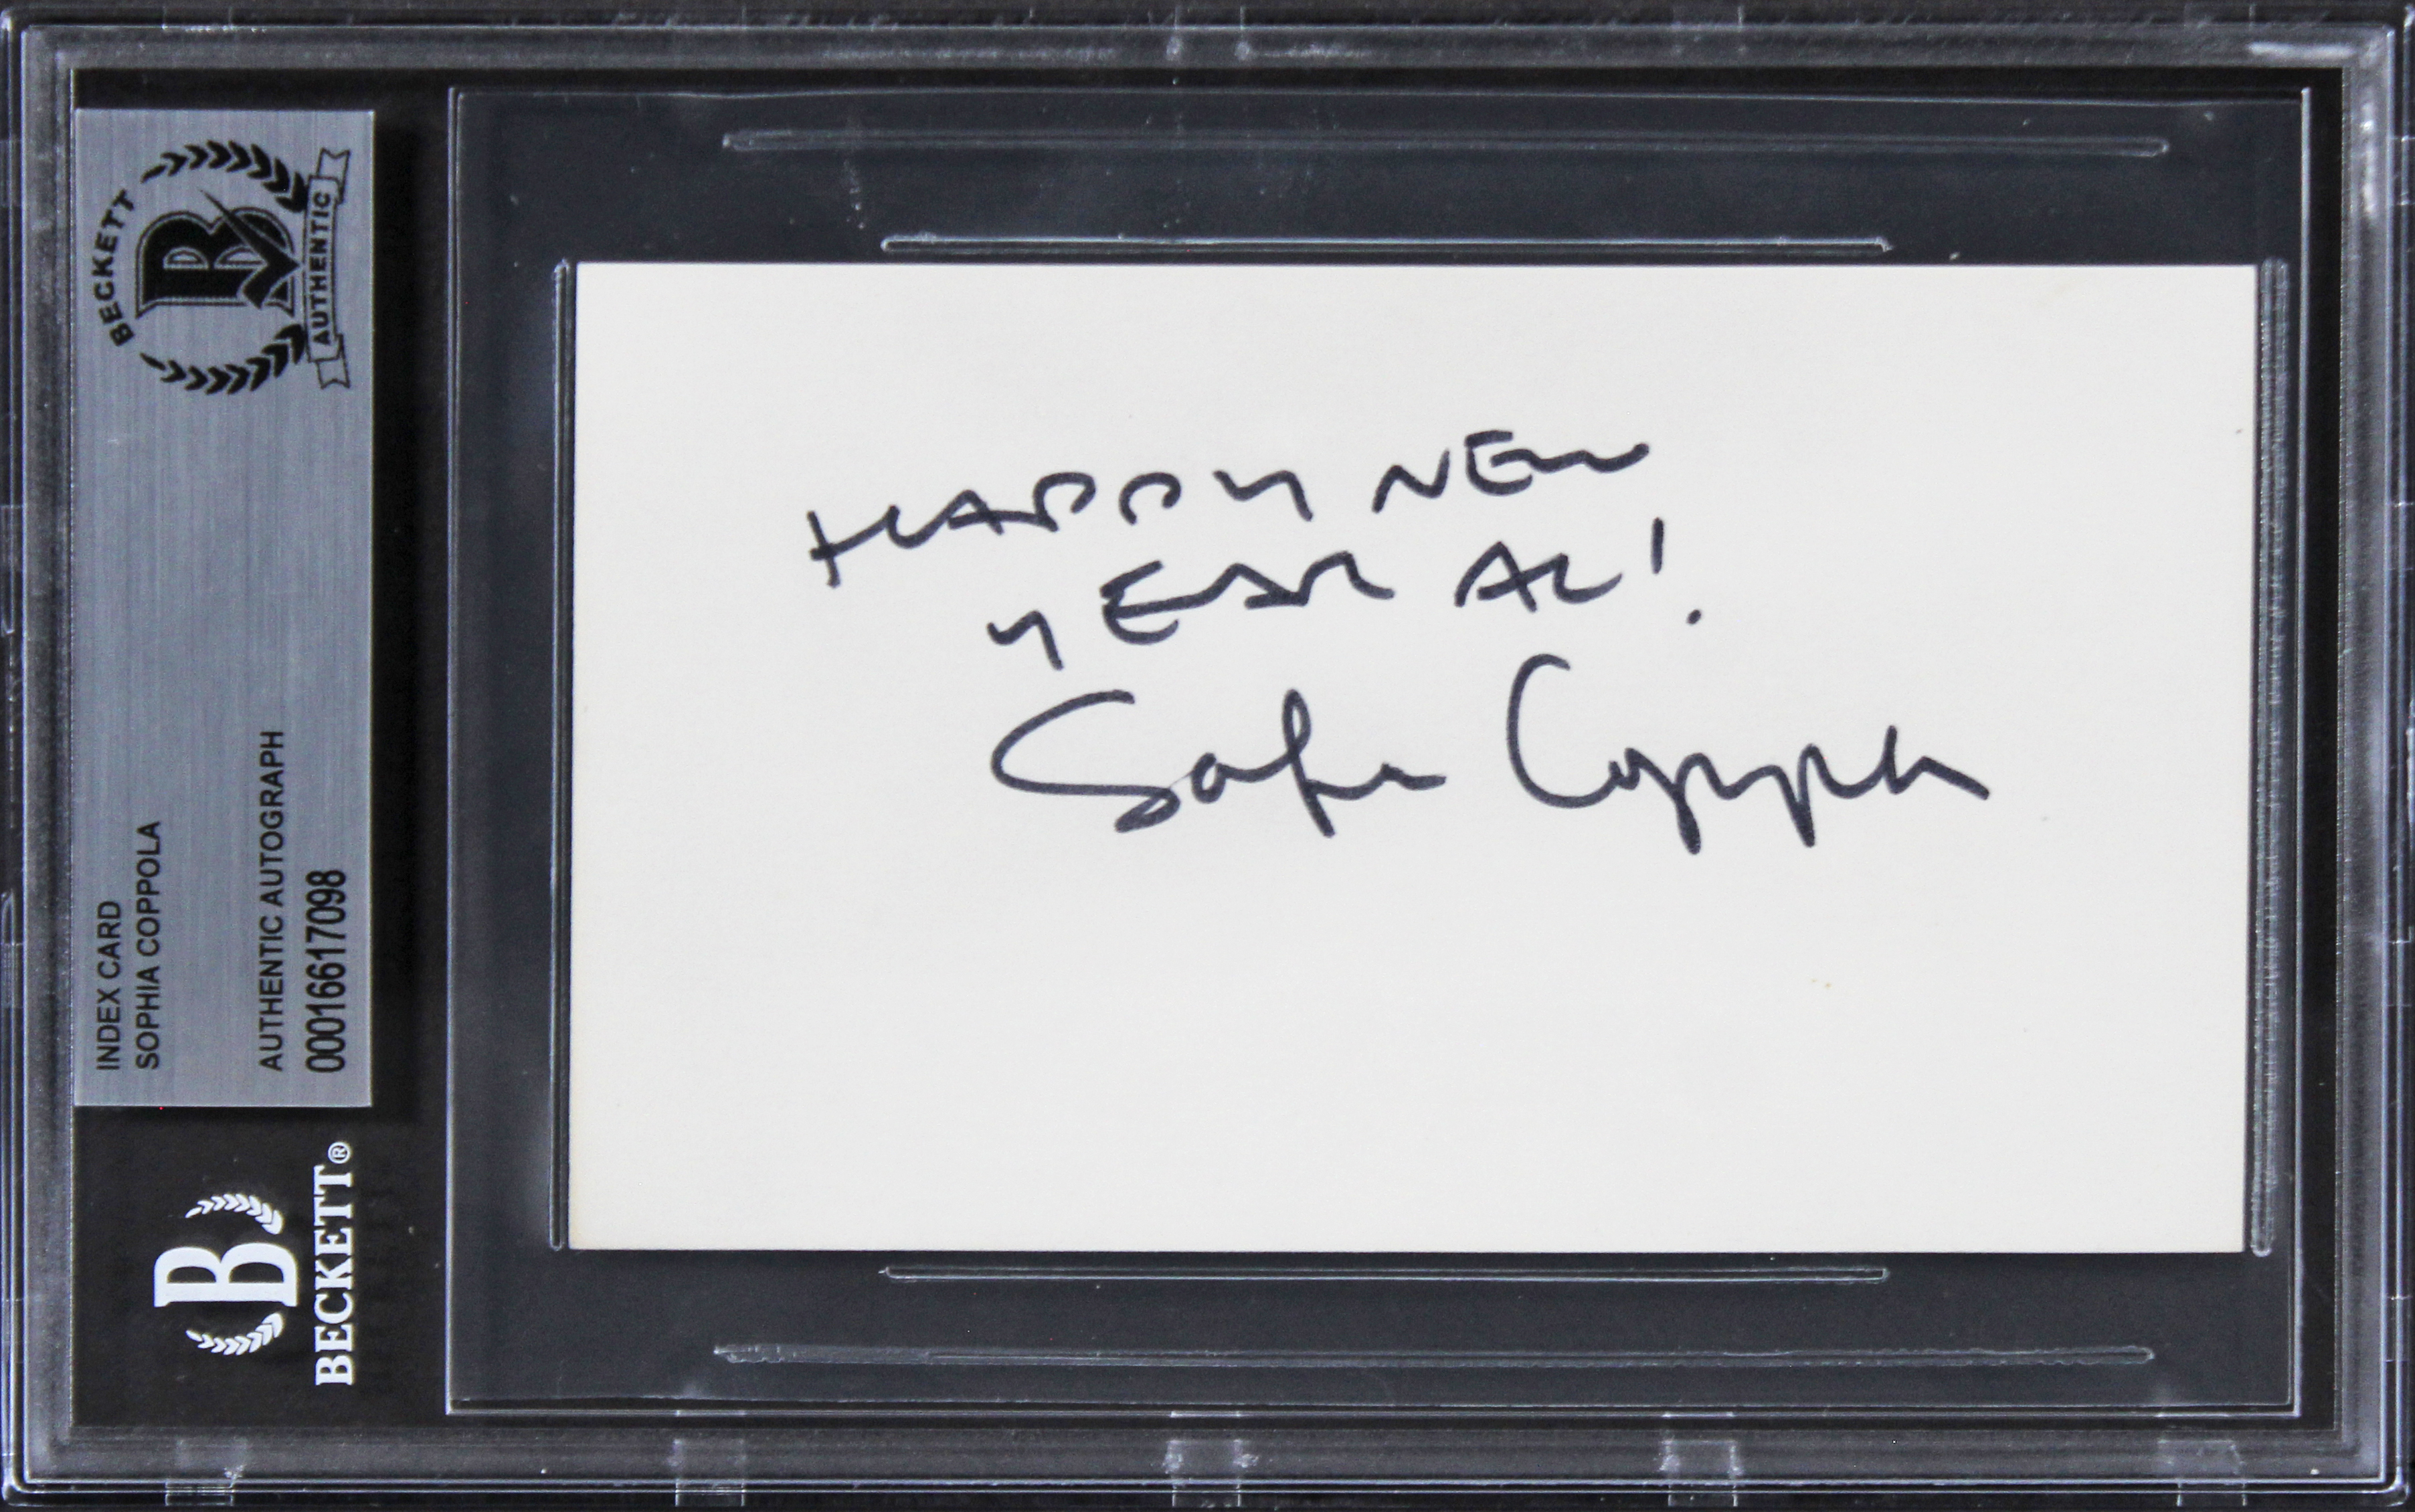 BECKETT
B
AUTHENTIC
INDEX CARD
SOPHIA COPPOLA
AUTHENTIC AUTOGRAPH
0001661７098
B
BECKETT®
HAPPY NEW
YEAR AL!
Sofia Coppola